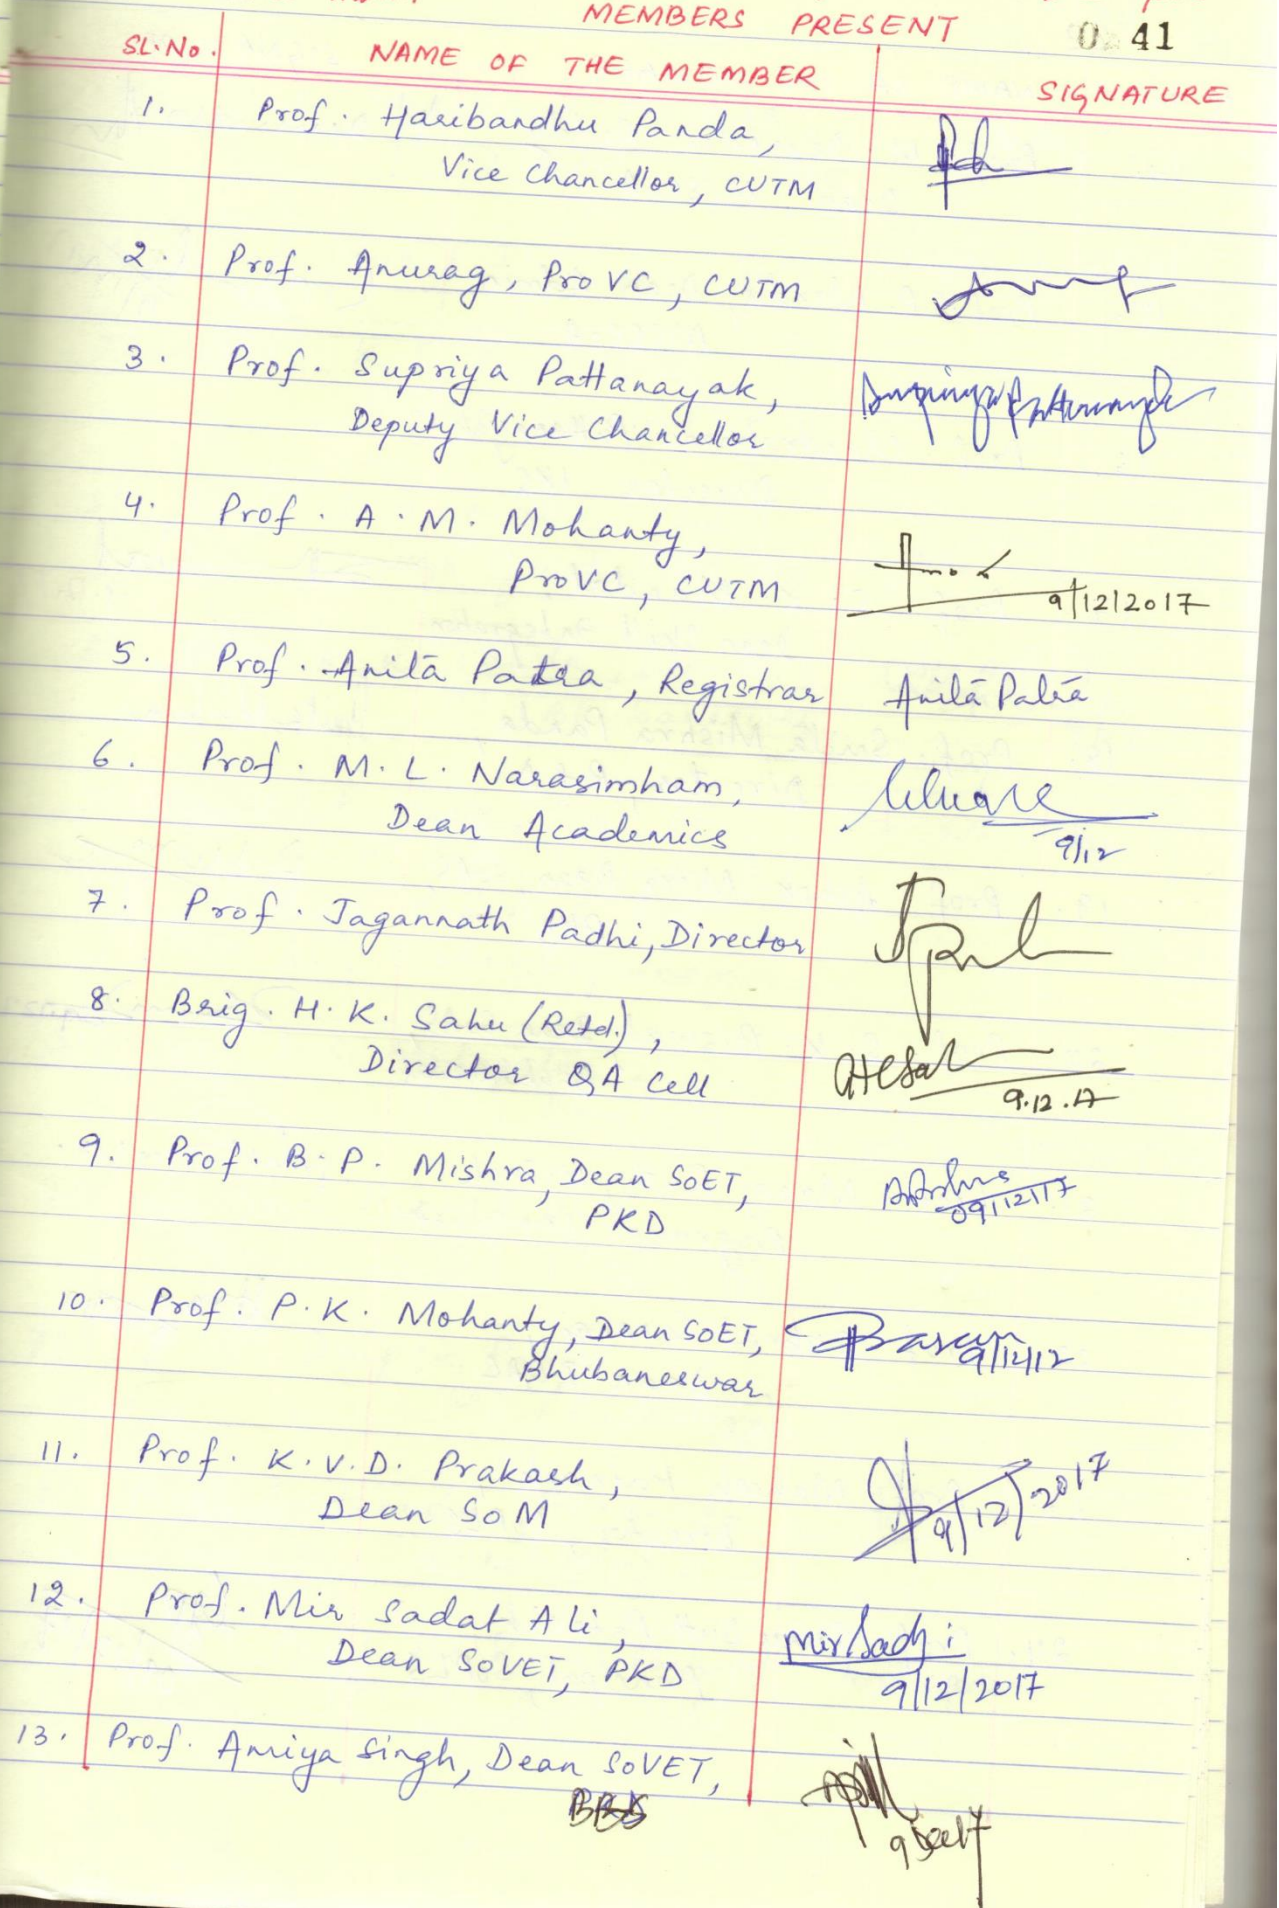 MEMBERS PRESENT
0 41
SL.No. NAME OF THE MEMBER SIGNATURE
1. Prof. Haribandhu Panda,
Vice Chancellor, CUTM
2. Prof. Anurag, ProVC, CUTM
3. Prof. Supriya Pattanayak, Supriya Pattanayak
Deputy Vice Chancellor
4. Prof. A.M. Mohanty,
ProVC, CUTM 9/12/2017
5. Prof. Anita Patra, Registrar Anita Patra
6. Prof. M.L. Narasimham,
Dean Academics 9/12
7. Prof. Jagannath Padhi, Director
8. Brig. H.K. Sahu (Retd.),
Director QA Cell 9.12.17
9. Prof. B.P. Mishra, Dean SoET,
PKD 09/12/17
10. Prof. P.K. Mohanty, Dean SoET,
Bhubaneswar
11. Prof. K.V.D. Prakash,
Dean SoM 9/12/2017
12. Prof. Mir Sadat Ali,
Dean SoVET, PKD
9/12/2017
13. Prof. Amiya Singh, Dean SoVET,
BBS
9 Dec 17